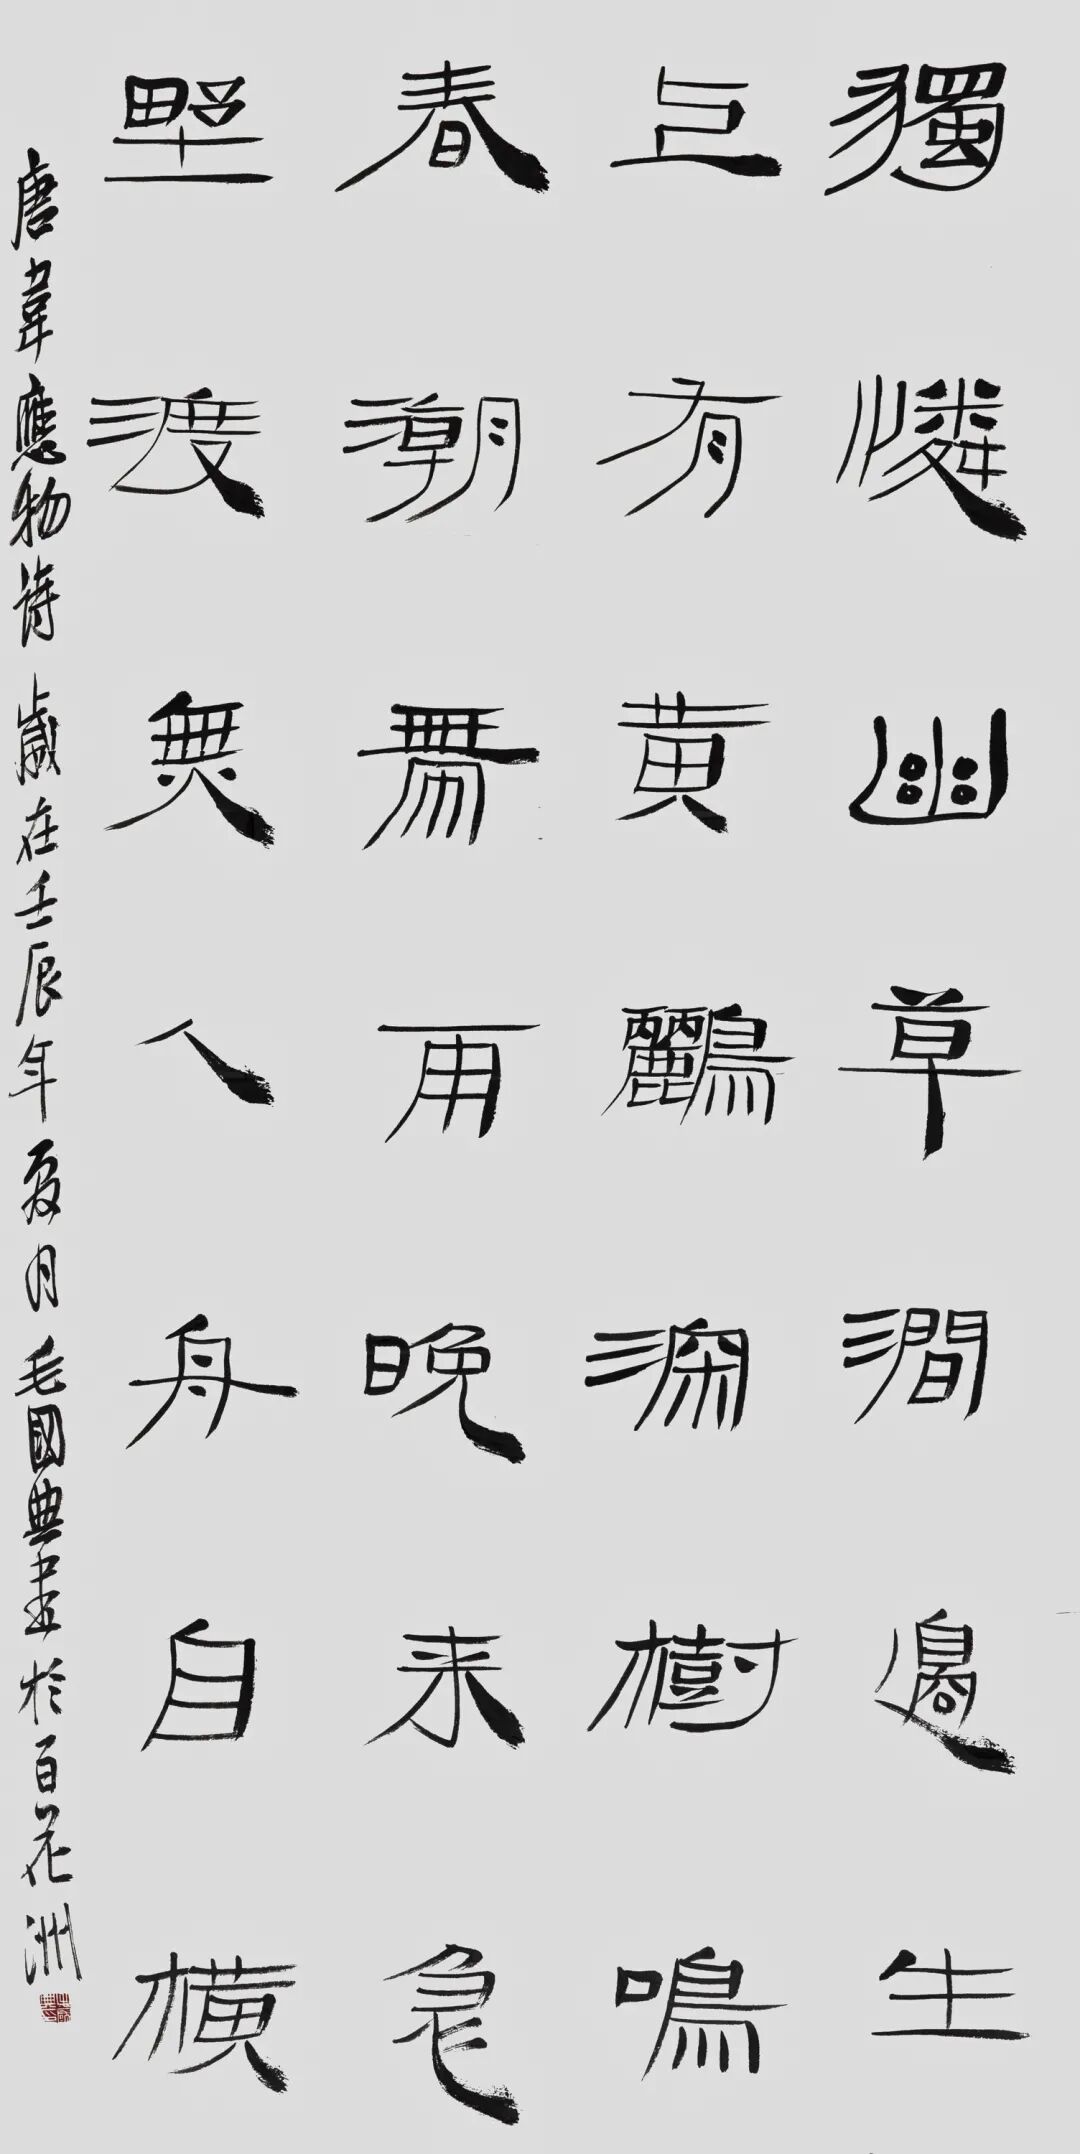 獨憐幽草澗邊生
上有黄鸝深樹鳴
春潮帶雨晚来急
野渡無人舟自橫
唐韋應物詩 歲在壬辰年夏月毛國典書於百花洲